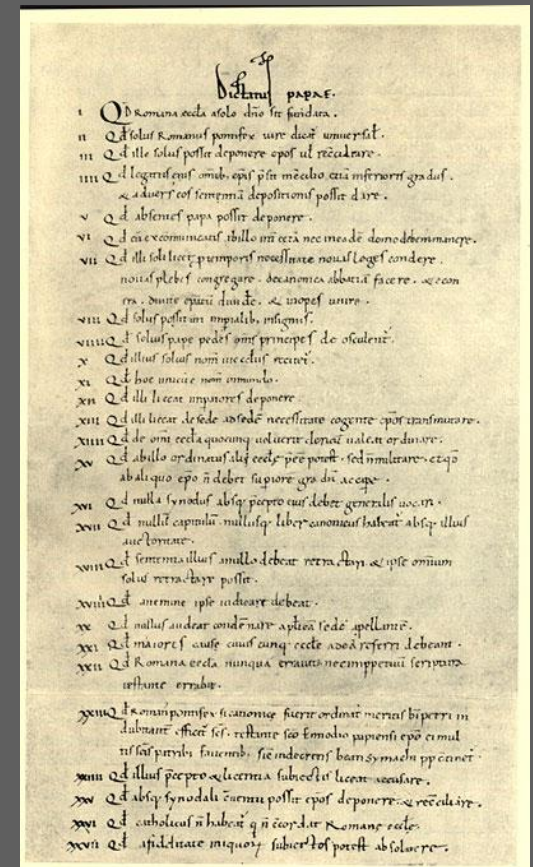 Dictatus papae.
I Qd Romana eccla a solo dño sit fundata.
II Qd solus Romanus pontifex iure dicat universal.
III Qd ille solus possit deponere epos ul reccliare.
IIII Qd legatus eius omib, epis psit in cclio, etiã inferioris gradus.
& adversus eos sententiã depositionis possit dare.
V Qd absentes papa possit deponere.
VI Qd cũ excommunicatis ab illo int cetã nec in eadẽ domo debem manere.
VII Qd illi soli licet p temporis necessitate novas leges condere
novas plebes congregare. de canonica abbatiã facere. & e con
tra. divitẽ epatũ divide. & inopes unire.
VIII Qd solus possit uti impialib, insigniis.
VIIII Qd solius pape pedes oms principes deosculent.
X Qd illius solius nom in ecclis recitet.
XI Qd hoc unicũ ẽ nom in mundo.
XII Qd illi liceat impatores deponere.
XIII Qd illi liceat de sede ad sedẽ necessitate cogente epos transmutare.
XIIII Qd de omi eccla quocunq voluerit clericũ valeat ordinare.
XV Qd ab illo ordinatus alii eccle pẽe potest. sed ñ militare. et qd
ab aliquo epo ñ debet supiore gradũ accipe.
XVI Qd nulla synodus absq pcepto eius debet generalis vocari.
XVII Qd nullũ capitulũ nullusq liber canonicus habeat absq illius
auctoritate.
XVIII Qd sententia illius a nullo debeat retractari & ipse omnium
solus retractare possit.
XVIIII Qd a nemine ipse iudicare debeat.
XX Qd nullus audeat condẽnare aplicã sedẽ apellante.
XXI Qd maiores cause cuiuscunq eccle ad eã referri debeant.
XXII Qd Romana eccla nunquã erravit nec imppetuũ scriptura
testante errabit.
XXIII Qd Roman pontifex si canonice fuerit ordinat meritis bi petri in
dubitant efficit scs. testante sco Ennodio papiensi epo ei mul
tis scis patrib, faventib, sic in decretis beati symachi pp ctinet.
XXIIII Qd illius pcepto & licentia subiectis liceat accusare.
XXV Qd absq synodali cventu possit epos deponere & reccliare.
XXVI Qd catholicus ñ habeat q ñ ccordat Romane eccle.
XXVII Qd a fidelitate iniquoꝝ subiectos potest absolvere.